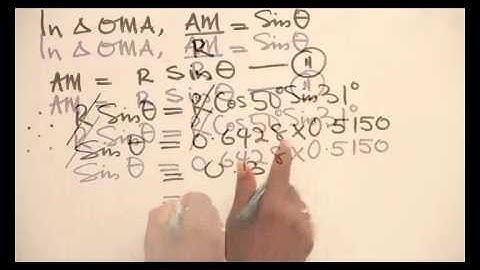 In Δ OMA, AM/R = Sinθ
AM = R Sinθ — 11
∴ R Sinθ = R Cos50° Sin31°
Sinθ = 0.6428 × 0.5150
= 0.3
=